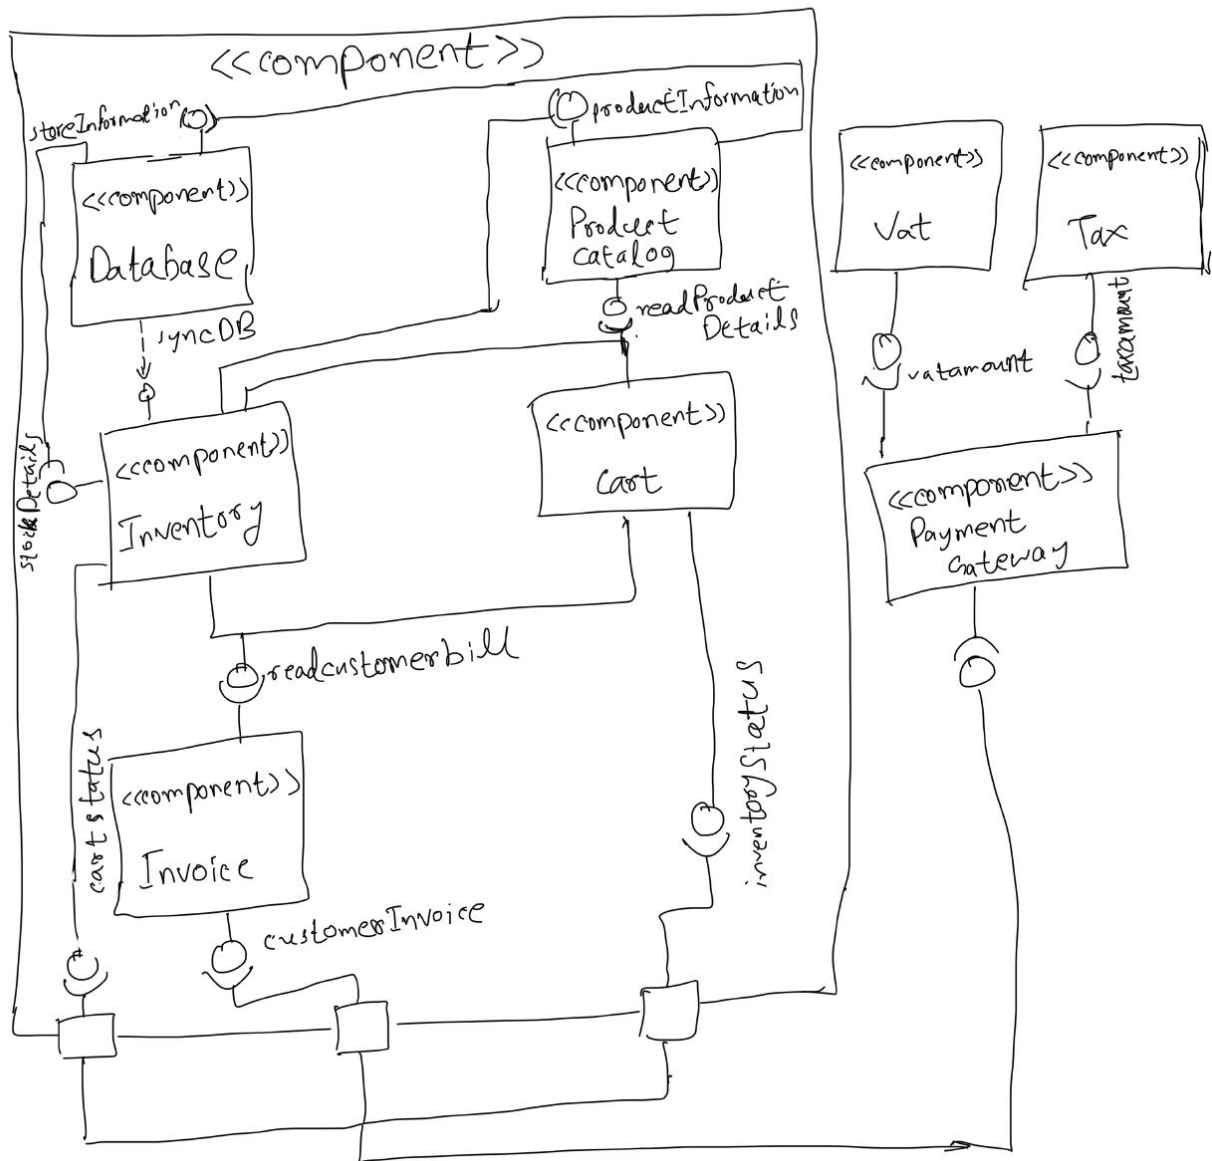 <<component>>
storeInformation
productInformation
<<component>>
Database
<<component>>
Product
catalog
<<component>>
Vat
<<component>>
Tax
syncDB
readProduct
Details
vatamount
taxamount
<<component>>
Inventory
stockDetails
<<component>>
Cart
<<component>>
Payment
Gateway
readcustomerbill
cartstatus
inventoryStatus
<<component>>
Invoice
customerInvoice